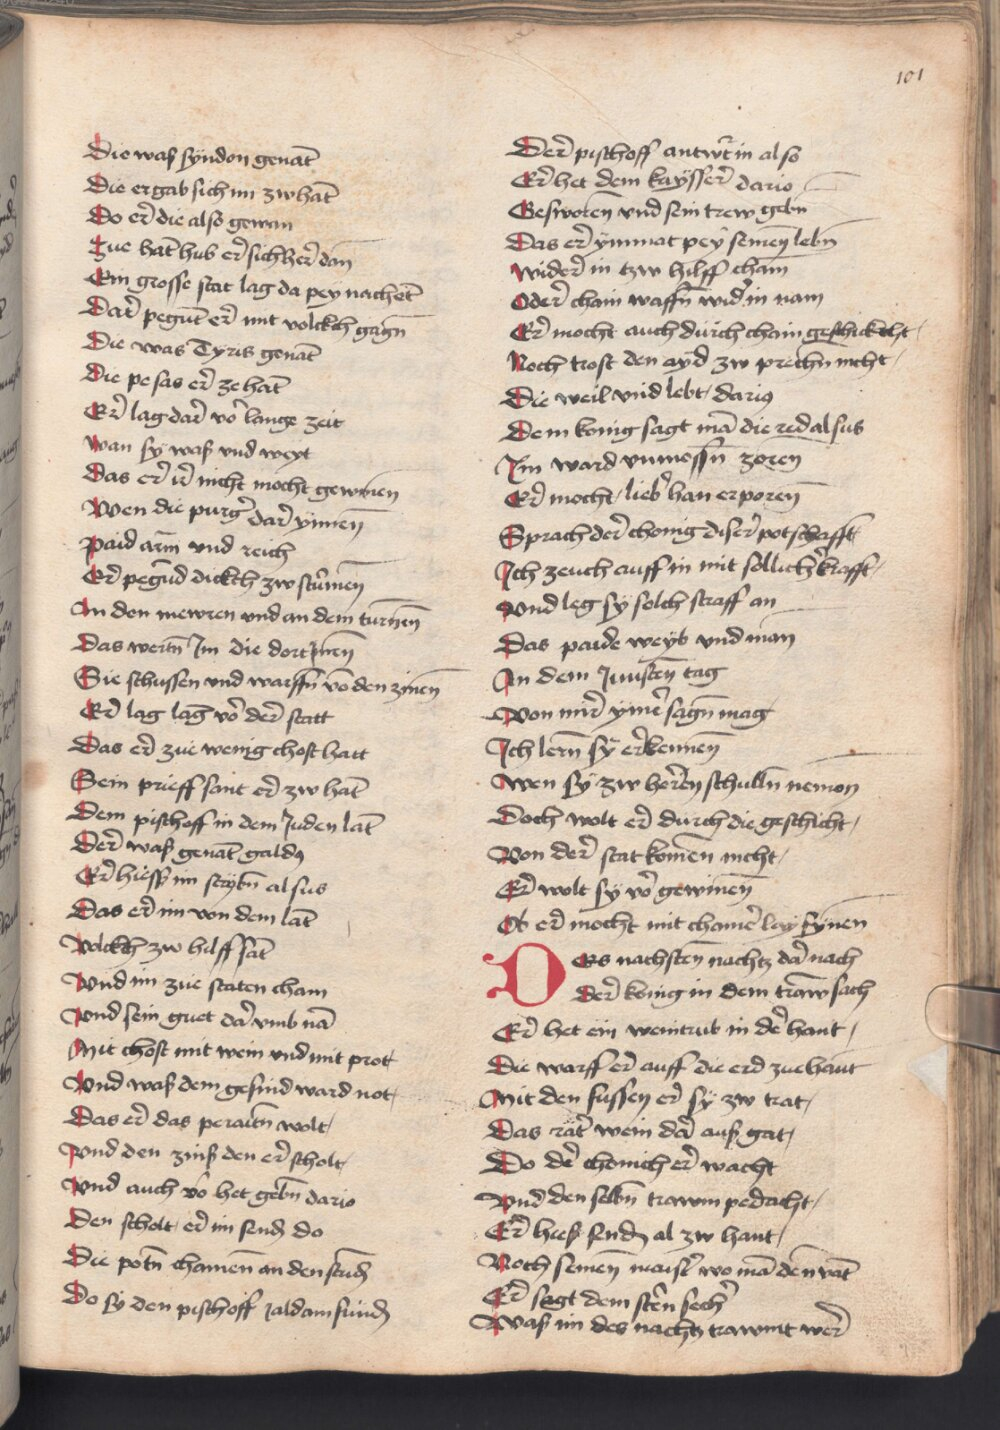 101
Die waß syndon genāt
Die ergab sich im zw hāt
Do er die also gewan
Zue hāt hub er sich her dan
Ein grosse stat lag da pey nachēt
Dar pegūt er mit volckch gagn̄
Die was Tyris genāt
Die pesas er ze hāt
Er lag dar vor lange zeit
Wan sy waß vnd weyt
Das er ir nicht mocht gewinen
Wen die purger dar ynnen̄
Paid arm̄ vnd reich
Er pegūd dickch zw stūrmen̄
An den mewren vnd an dem turnen̄
Das wertn̄ Im die dort Inen̄
Sie schussen vnd warffn̄ vō den zinen̄
Er lag lāg vor der statt
Das er zue wenig chost hatt
Sein prieff sant er zw hāt
Dem pischoff in dem Juden lāt
Der waß genāt galdus
Er hieß im scrybn̄ alsus
Das er im von dem lāt
Volckch zw hilff sāt
Vnd im zue staten cham
Vnd sein guet dar vmb nā
Mit chost mit wein vnd mit prot
Vnd waß dem gesind ward not
Das er das peraitn̄ wolt
Vnd den zinß den er scholt
Vnd auch vor het gebn̄ dario
Den scholt er im sendn̄ do
Die potn̄ chamen̄ an den stūd
Do sy den pischoff Jaldam fundn̄
Der pischoff antwrt in also
Er het dem kaysser dario
Gesworen̄ vnd sein trew gebn̄
Das er ymmat pey seinen̄ lebn̄
Wider in tzw hilff cham
Oder chain waffn̄ wider in nam
Er mocht auch durch chain geschickcht
Noch trost den ayd zw prechn̄ nicht
Die weil vnd lebt darius
Dem konig sagt mā die red alsus
Im ward vnmessn̄ zoren
Er mocht lieber han erporen̄
Sprach der chonig diser potschafft
Ich zeuch auff in mit sollicher krafft
Vnd leg sy solch straff an
Das paide weyb vnd man
An dem Jungsten̄ tag
Von mir ymer sagn̄ mag
Ich lern̄ sy erkennen̄
Wen sy zw heren̄ schulln̄ nemon
Doch wolt er durch die geschicht
Von der stat komen̄ nicht
Er wolt sy vor gewinen̄
Ob er mocht mit chainer lay synen
Des nachsten̄ nachtz dar nach
Der konig in dem trawm sach
Er het ein weintrub in der hant
Die warff er auff die erd zue hant
Mit den fussen er sy zw trat
Das rater wein dar auß gat
Do der chonich er wacht
Vnd den selbn̄ trawm pedacht
Er hieß sendn̄ al zw hant
Noch seinen̄ maister wo mā den vāt
Er sagt dem stern̄ secher
Waß im des nachtz trawmt wer